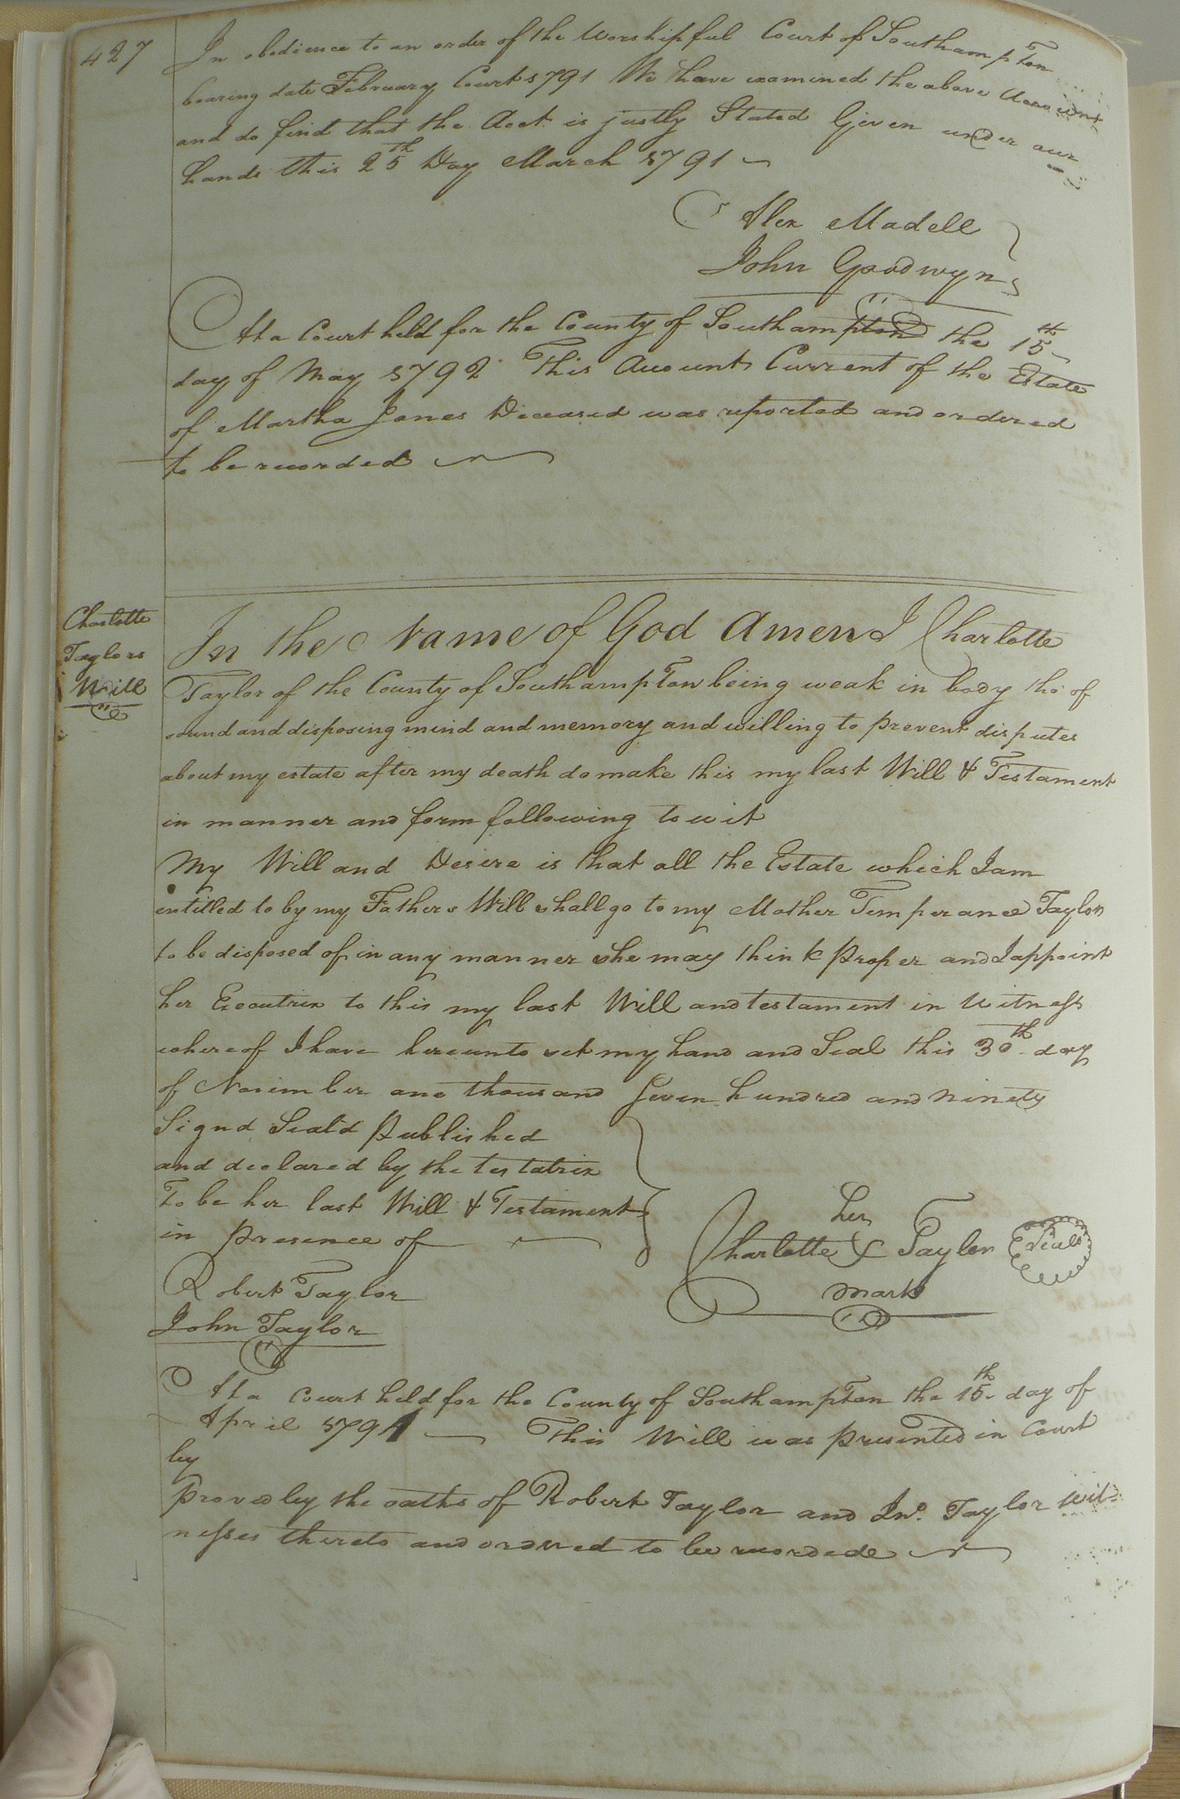 427
In obedience to an order of the Worshipful Court of Southampton
bearing date February Court 1791 We have examined the above Account
and do find that the Acct. is justly Stated Given under our
hands this 25th Day March 1791
Alex Madell
John Goodwyn
At a Court held for the County of Southampton the 15th
day of May 1792 This Account Current of the Estate
of Martha Jones Deceased was reported and ordered
to be recorded
Charlotte
Taylors
Will
In the Name of God Amen I Charlotte
Taylor of the County of Southampton being weak in body tho' of
sound and disposing mind and memory and willing to prevent disputes
about my estate after my death do make this my last Will & Testament
in manner and form following to wit
My Will and Desire is that all the Estate which I am
intitled to by my Fathers Will shall go to my Mother Temperance Taylor
to be disposed of in any manner she may think Proper and I appoint
her Executrix to this my last Will and testament in Witness
whereof I have hereunto set my hand and Seal this 30th day
of November one thousand Seven hundred and ninety
Signd Seald Published
and declared by the testatrix
To be her last Will & Testament
in Presence of
her
Charlotte X Taylor Seal
mark
Robert Taylor
John Taylor
At a Court held for the County of Southampton the 15th day of
April 1791 This Will was Presented in Court
by
Proved by the oaths of Robert Taylor and Jno. Taylor wit-
nesses thereto and ordered to be recorded